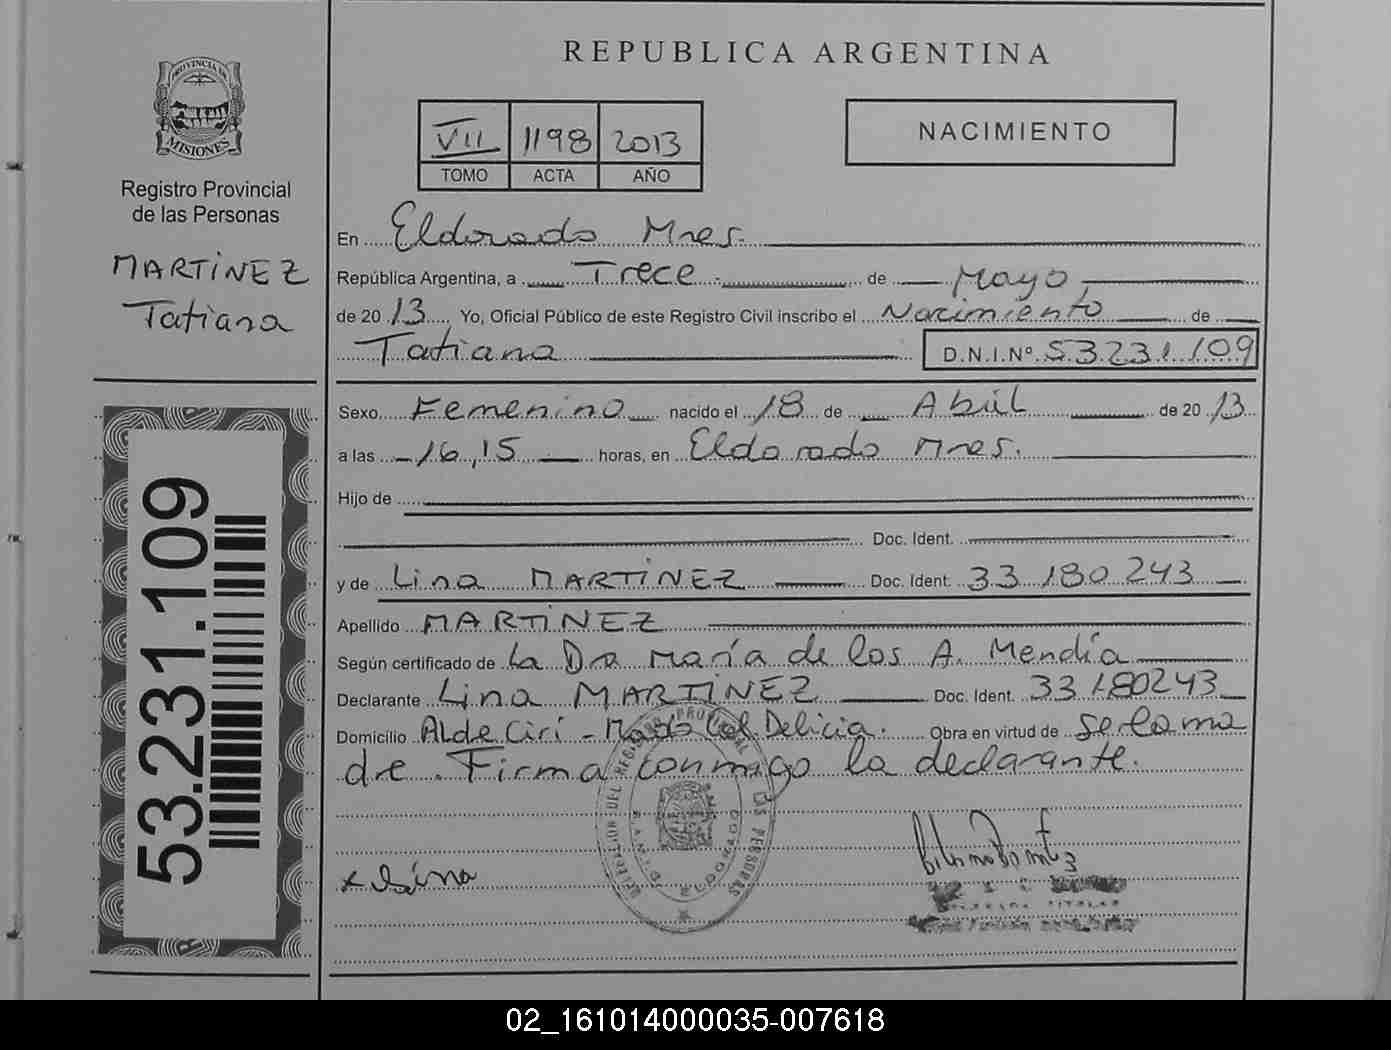 REPUBLICA ARGENTINA
PROVINCIA DE
MISIONES
Registro Provincial
de las Personas
MARTINEZ
Tatiana
VII 1198 2013
TOMO ACTA AÑO
NACIMIENTO
En Eldorado Mnes.
República Argentina, a Trece de Mayo
de 2013 Yo, Oficial Público de este Registro Civil inscribo el Nacimiento de
Tatiana D.N.I.Nº 53231109
Sexo Femenino nacido el 18 de Abril de 2013
a las 16,15 horas, en Eldorado Mnes.
Hijo de
Doc. Ident.
y de Lina MARTINEZ Doc. Ident. 33 180 243
Apellido MARTINEZ
Según certificado de La Dra María de los A. Mendía
Declarante Lina MARTINEZ Doc. Ident. 33180243
Domicilio Alde Cirí - Mado Col. Delicia. Obra en virtud de ser la ma
dre. Firma conmigo la declarante.
x Lina
53.231.109
02_161014000035-007618